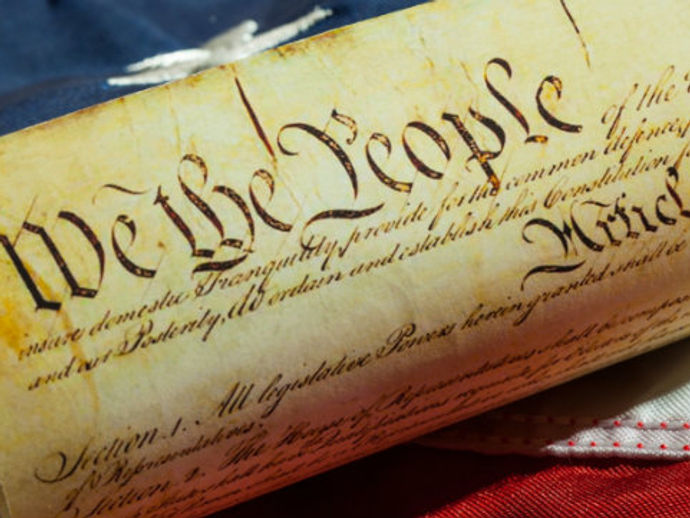 We the People of the
insure domestic Tranquility, provide for the common defence,
and our Posterity, do ordain and establish this Constitution
Articl
Section. 1. All legislative Powers herein granted shall be
of Representatives.
Section. 2. The House of Representatives shall be